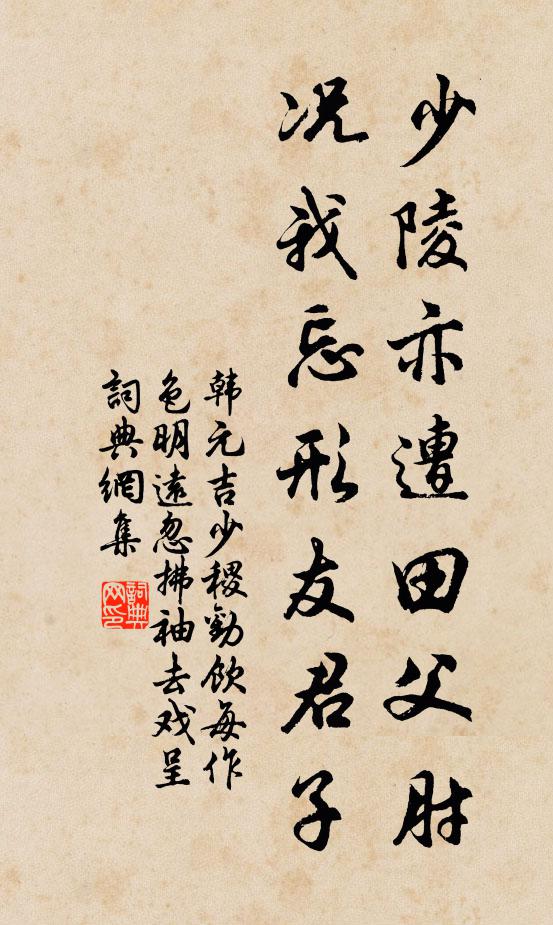 少陵亦遭田父肘
况我忘形友君子
韩元吉少稷劝饮每作
色明远忽拂袖去戏呈
詞典網集
詞典网印